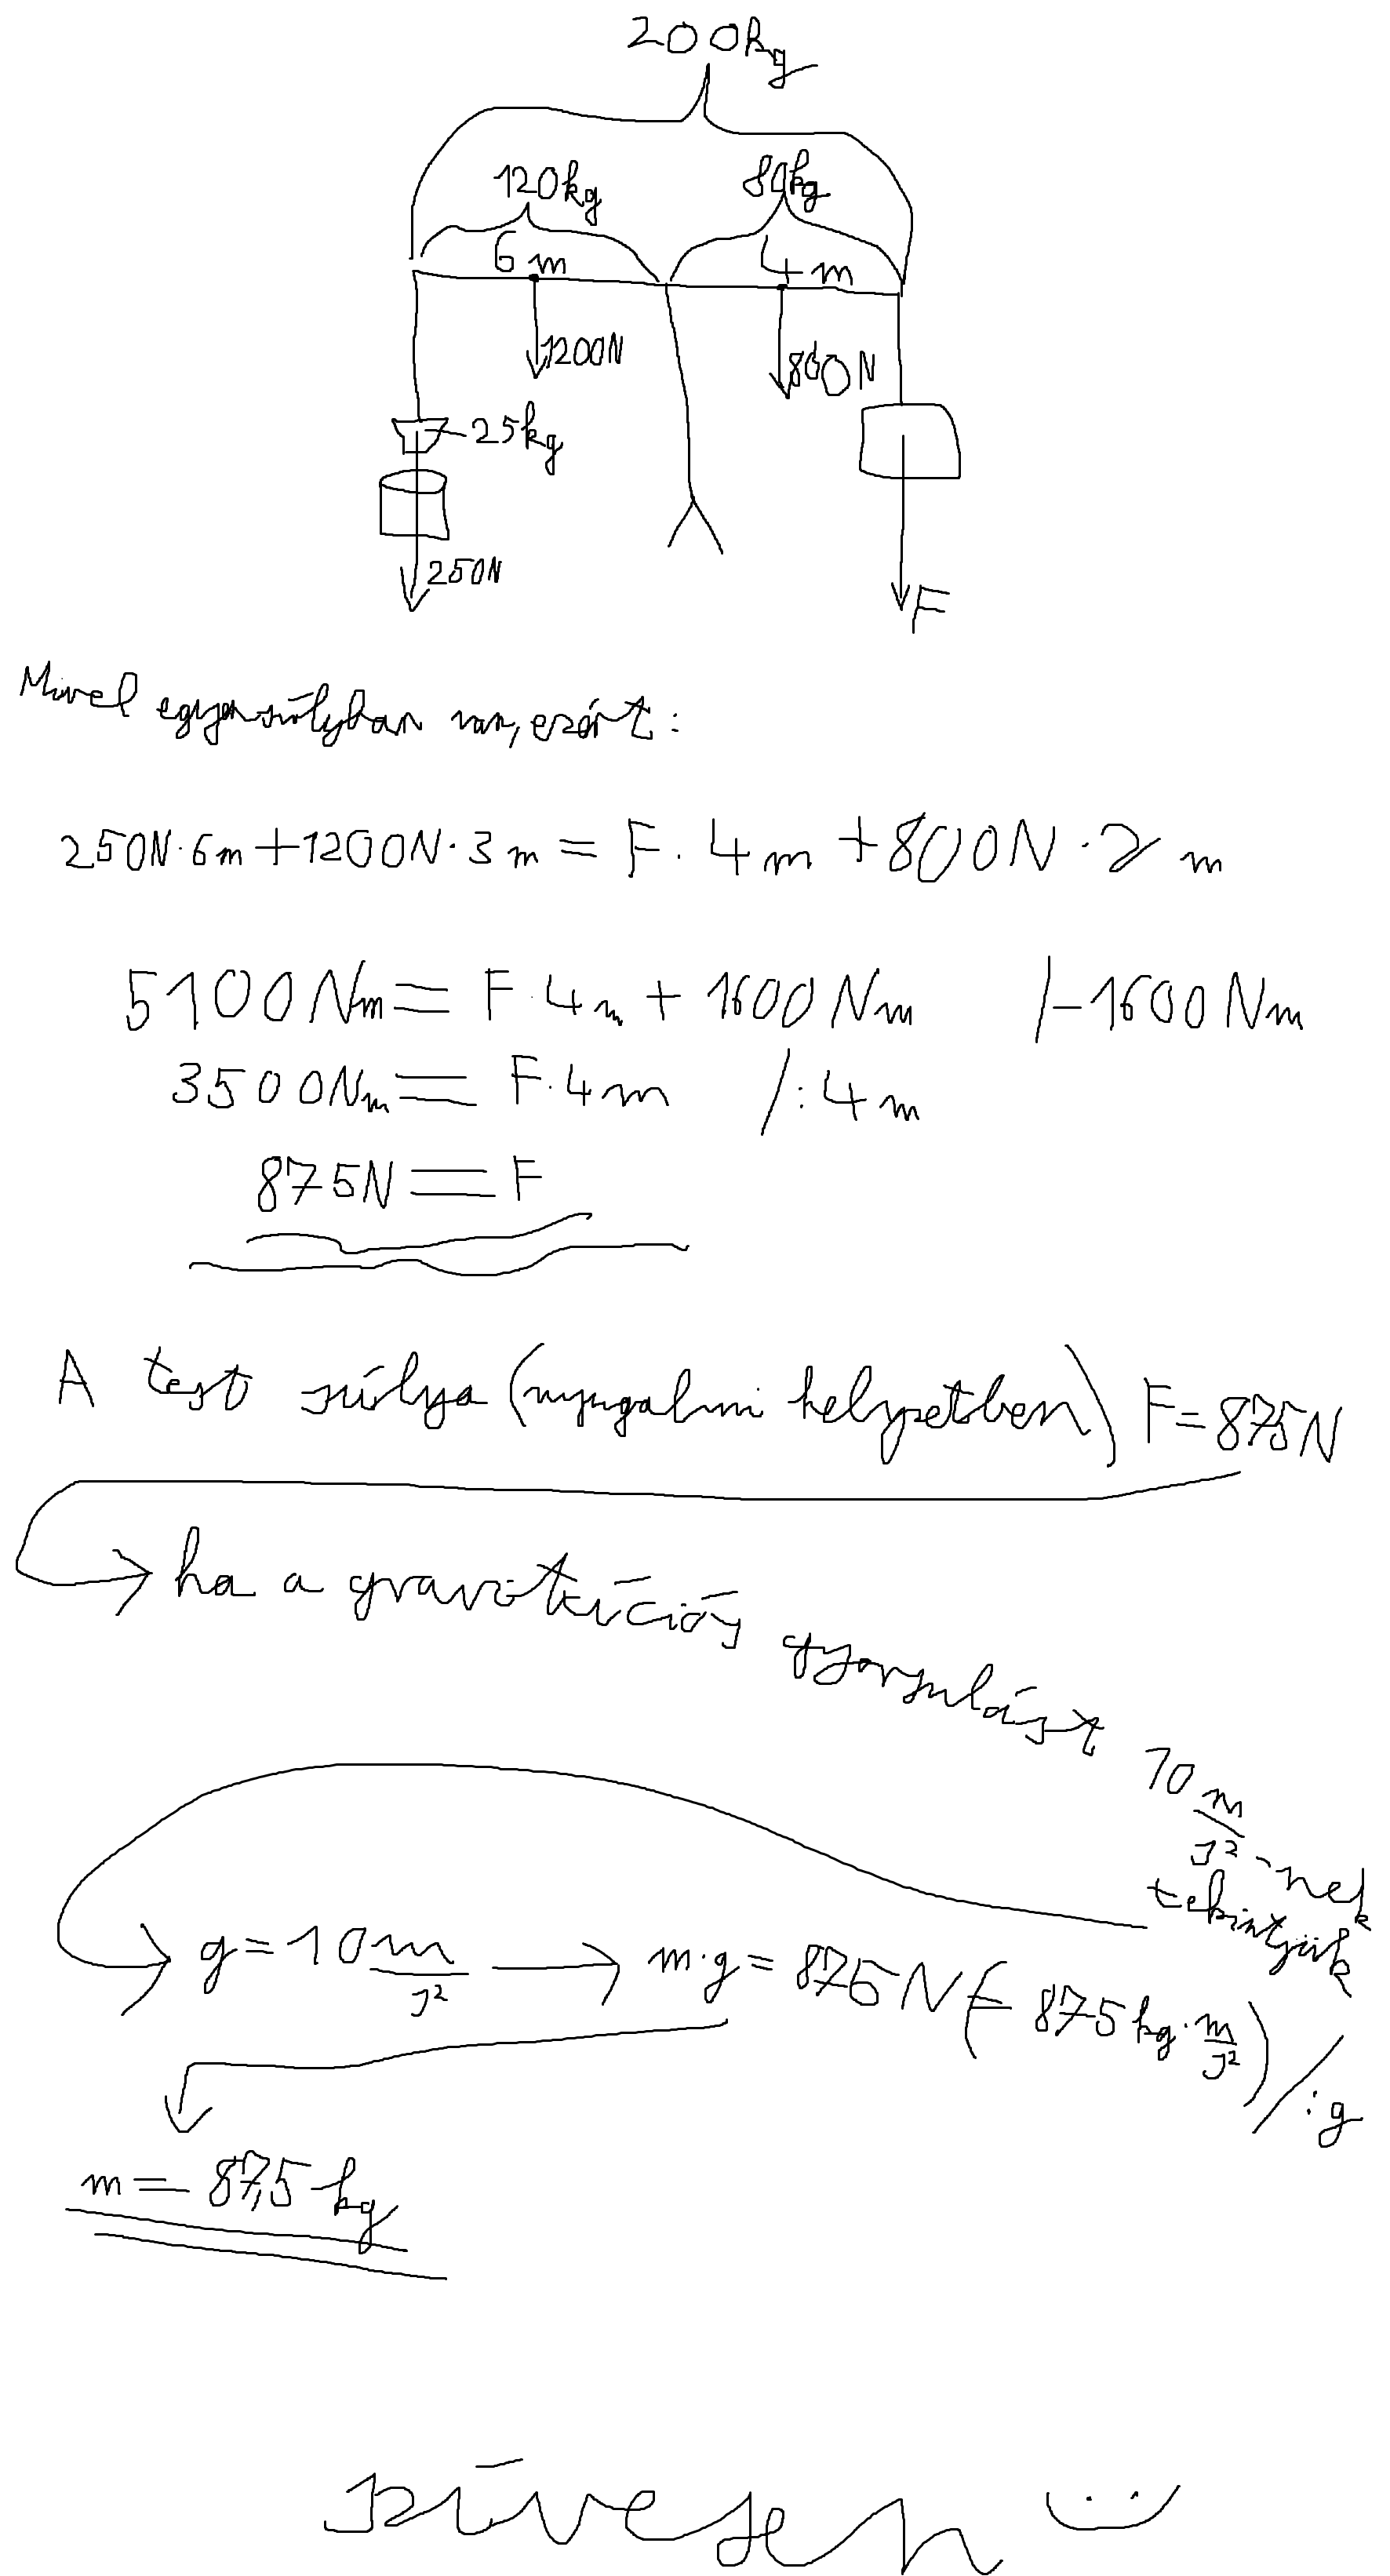 200kg
120kg
80kg
6 m
4 m
1200N
800N
25kg
250N
F
Mivel egyensúlyban van, ezért:
250N·6m+1200N·3m=F·4m+800N·2m
5100Nm=F·4m+1600Nm /-1600Nm
3500Nm=F·4m /:4m
875N=F
A test súlya (nyugalmi helyzetben) F=875N
ha a gravitációs gyorsulást 10 m/s²-nek
tekintjük
g=10 m/s² → m·g=875N(=875kg·m/s²) /:g
m=87,5kg
szívesen :)